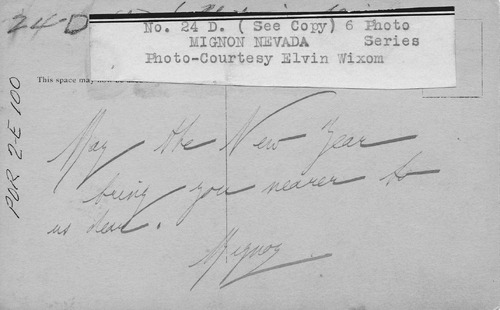 24-D
No. 24 D. ( See Copy) 6 Photo
MIGNON NEVADA Series
Photo-Courtesy Elvin Wixom
This space may
POR 2-E 100
May the New Year
bring you nearer to
us dear.
Mignon